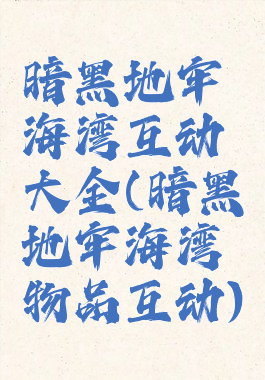 暗黑地牢
海湾互动
大全(暗黑
地牢海湾
物品互动)